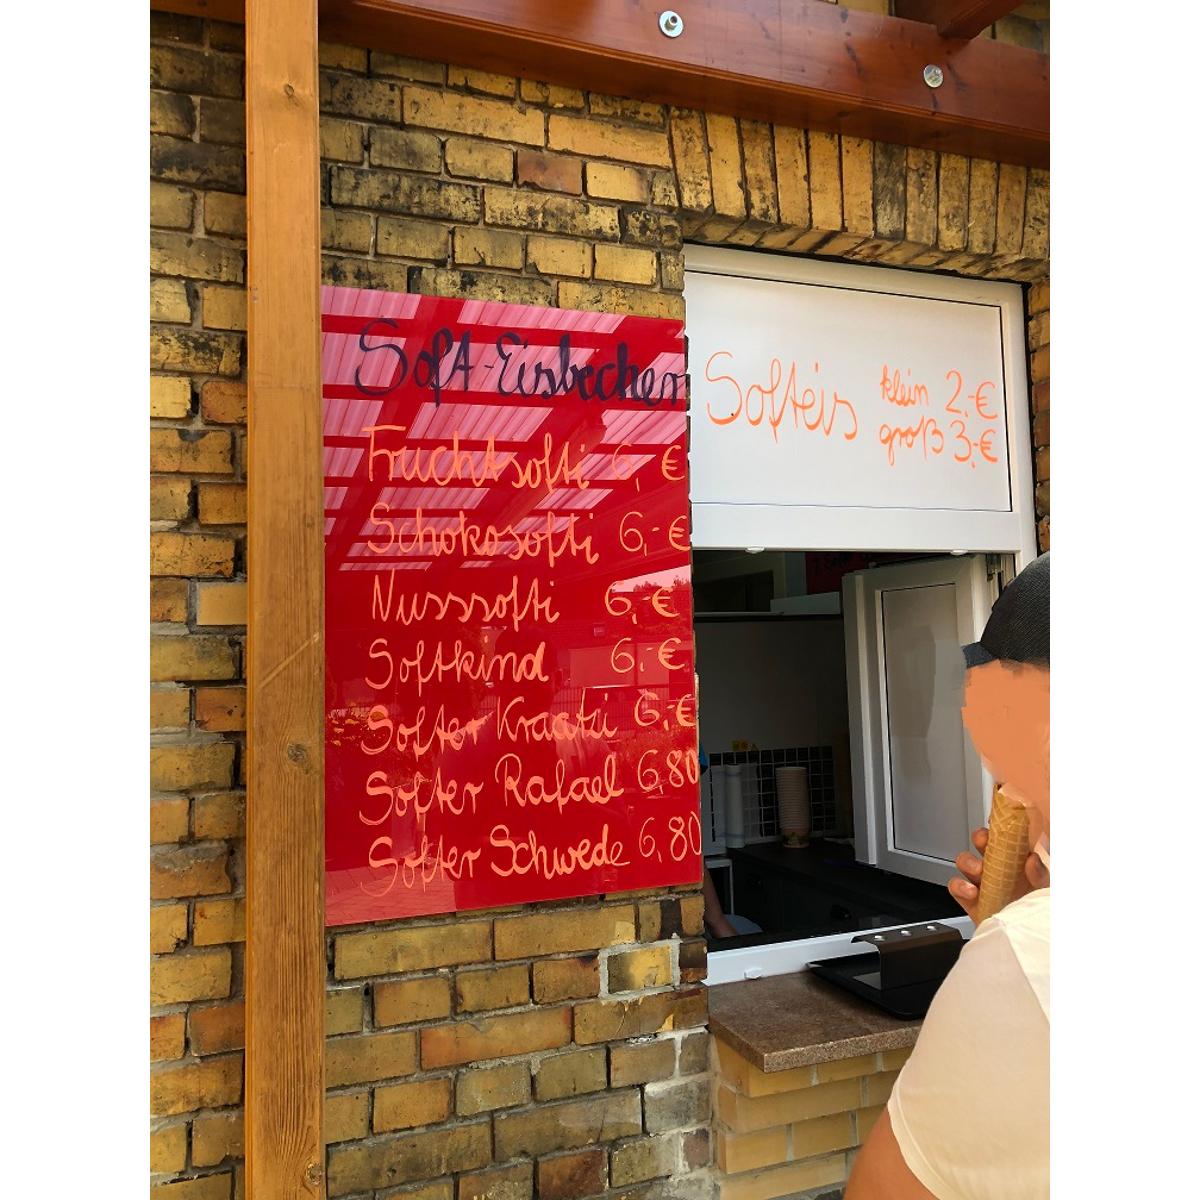 Soft-Eisbecher
Fruchtsofti 6,- €
Schokosofti 6,-€
Nusssofti 6,-€
Softkind 6,-€
Softer Kraatzi 6,-€
Softer Rafael 6,80
Softer Schwede 6,80
Softeis klein 2.-€
groß 3.-€